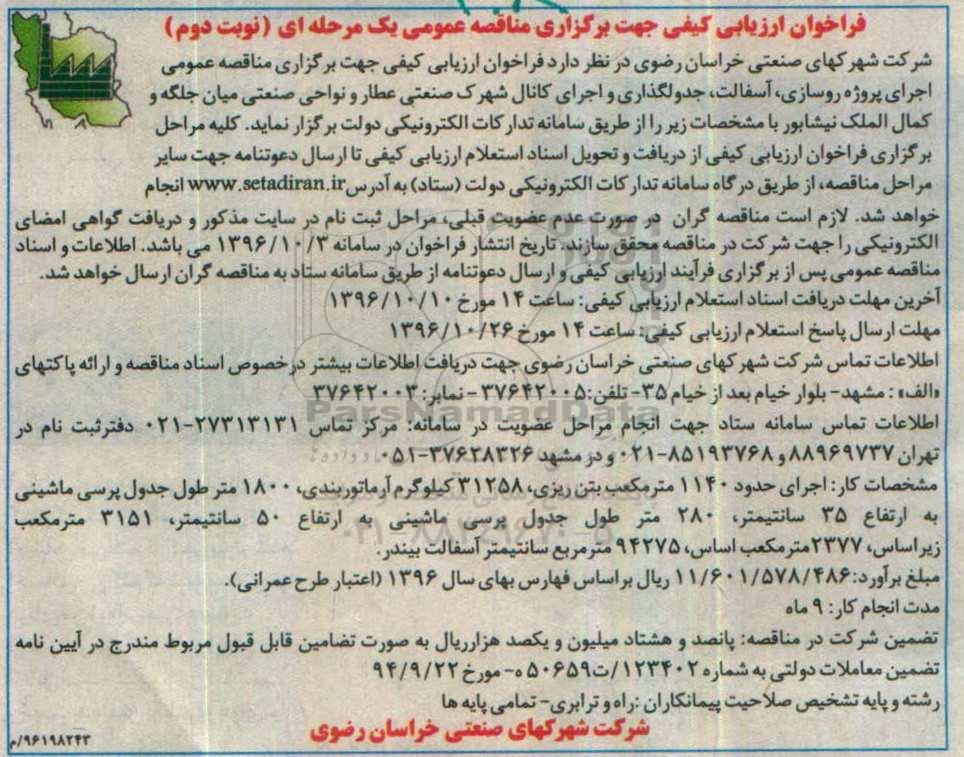 فراخوان ارزیابی کیفی جهت برگزاری مناقصه عمومی یک مرحله ای (نوبت دوم)
شرکت شهرکهای صنعتی خراسان رضوی در نظر دارد فراخوان ارزیابی کیفی جهت برگزاری مناقصه عمومی
اجرای پروژه روسازی، آسفالت، جدولگذاری و اجرای کانال شهرک صنعتی عطار و نواحی صنعتی میان جلگه و
کمال الملک نیشابور با مشخصات زیر را از طریق سامانه تدارکات الکترونیکی دولت برگزار نماید. کلیه مراحل
برگزاری فراخوان ارزیابی کیفی از دریافت و تحویل اسناد استعلام ارزیابی کیفی تا ارسال دعوتنامه جهت سایر
مراحل مناقصه، از طریق درگاه سامانه تدارکات الکترونیکی دولت (ستاد) به آدرس www.setadiran.ir انجام
خواهد شد. لازم است مناقصه گران در صورت عدم عضویت قبلی، مراحل ثبت نام در سایت مذکور و دریافت گواهی امضای
الکترونیکی را جهت شرکت در مناقصه محقق سازند. تاریخ انتشار فراخوان در سامانه ۱۳۹۶/۱۰/۳ می باشد. اطلاعات و اسناد
مناقصه عمومی پس از برگزاری فرآیند ارزیابی کیفی و ارسال دعوتنامه از طریق سامانه ستاد به مناقصه گران ارسال خواهد شد.
آخرین مهلت دریافت اسناد استعلام ارزیابی کیفی: ساعت ۱۴ مورخ ۱۳۹۶/۱۰/۱۰
مهلت ارسال پاسخ استعلام ارزیابی کیفی: ساعت ۱۴ مورخ ۱۳۹۶/۱۰/۲۶
اطلاعات تماس شرکت شهرکهای صنعتی خراسان رضوی جهت دریافت اطلاعات بیشتر درخصوص اسناد مناقصه و ارائه پاکتهای
«الف» : مشهد- بلوار خیام بعد از خیام ۳۵- تلفن: ۳۷۶۴۲۰۰۵- نمابر: ۳۷۶۴۲۰۰۳
ParsNamadData
اطلاعات تماس سامانه ستاد جهت انجام مراحل عضویت در سامانه: مرکز تماس ۲۷۳۱۳۱۳۱-۰۲۱ دفترثبت نام در
تهران ۸۸۹۶۹۷۳۷ و ۸۵۱۹۳۷۶۸-۰۲۱ و در مشهد ۳۷۶۲۸۳۲۶-۰۵۱
مشخصات کار: اجرای حدود ۱۱۴۰ مترمکعب بتن ریزی، ۳۱۲۵۸ کیلوگرم آرماتوربندی، ۱۸۰۰ متر طول جدول پرسی ماشینی
به ارتفاع ۳۵ سانتیمتر، ۲۸۰ متر طول جدول پرسی ماشینی به ارتفاع ۵۰ سانتیمتر، ۳۱۵۱ مترمکعب
زیراساس، ۲۳۷۷مترمکعب اساس، ۹۴۲۷۵ مترمربع سانتیمتر آسفالت بیندر.
مبلغ برآورد: ۱۱/۶۰۱/۵۷۸/۴۸۶ ریال براساس فهارس بهای سال ۱۳۹۶ (اعتبار طرح عمرانی).
مدت انجام کار: ۹ ماه
تضمین شرکت در مناقصه: پانصد و هشتاد میلیون و یکصد هزارریال به صورت تضامین قابل قبول مربوط مندرج در آیین نامه
تضمین معاملات دولتی به شماره ۱۲۳۴۰۲/ت۵۰۶۵۹ ه- مورخ ۹۴/۹/۲۲
رشته و پایه تشخیص صلاحیت پیمانکاران :راه و ترابری- تمامی پایه ها
شرکت شهرکهای صنعتی خراسان رضوی
۹۶۱۹۸۲۴۳/م